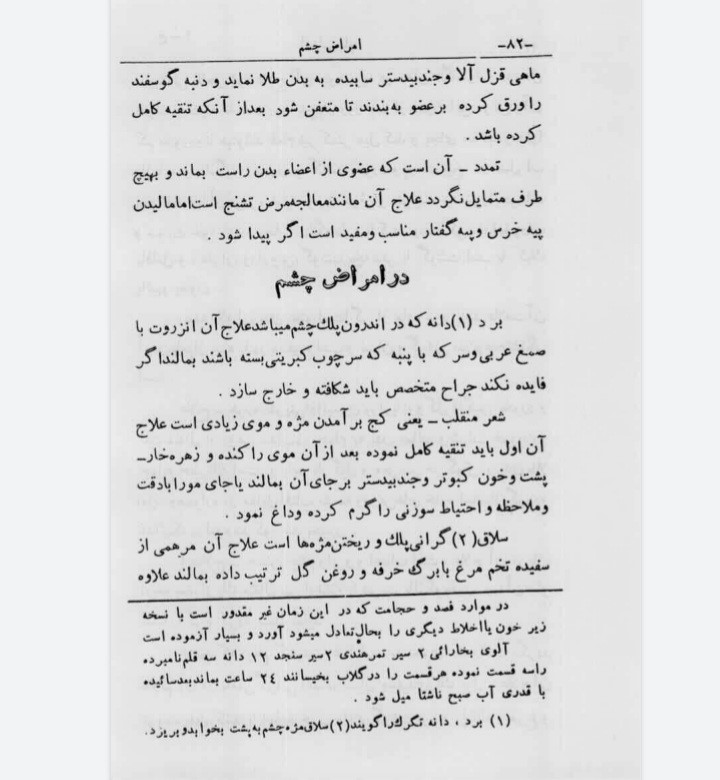 -۸۲-
امراض چشم
ماهی قزل آلا وجندبیدستر سابیده به بدن طلا نماید و دنبه گوسفند
را ورق کرده برعضو به‌بندند تا متعفن شود بعداز آنکه تنقیه کامل
کرده باشد .
تمدد ــ آن است که عضوی از اعضاء بدن راست بماند و بهیچ
طرف متمایل‌نگردد علاج آن مانندمعالجه‌مرض تشنج است‌امامالیدن
پیه خرس وپیه گفتار مناسب ومفید است اگر پیدا شود .
در امراض چشم
برد (۱)دانه که در اندرون‌پلك‌چشم‌میباشدعلاج‌آن انزروت با
صمغ عربی‌وسر که با پنبه که سرچوب کبریتی‌بسته باشند بمالنداگر
فایده نکند جراح متخصص باید شکافته و خارج سازد .
شعر منقلب ــ یعنی کج بر آمدن مژه و موی زیادی است علاج
آن اول باید تنقیه کامل نموده بعد از آن موی را کنده و زهره‌خار-
پشت وخون کبوتر وجندبیدستر برجای‌آن بمالند یاجای مورا بادقت
وملاحظه و احتیاط سوزنی را گرم کرده وداغ نمود .
سلاق(۲) گرانی‌پلك و ریختن‌مژه‌ها است علاج آن مرهمی از
سفیده تخم مرغ بابرگ خرفه و روغن گل ترتیب داده بمالند علاوه
در موارد فصد و حجامت که در این زمان غیر مقدور است با نسخه
زیر خون یااخلاط دیگری را بحال‌تعادل میشود آورد و بسیار آزموده است
آلوی بخارائی ۲ سیر تمرهندی ۲سیر سنجد ۱۲ دانه سه قلم‌نامبرده
راسه قسمت نموده هرقسمت را درگلاب بخیسانند ۲٤ ساعت بماندبعدسائیده
با قدری آب صبح ناشتا میل شود .
(۱) برد ، دانه تگرك‌راگویند(۲)سلاق‌مژه‌چشم‌به‌پشت بخوابدوبریزد.